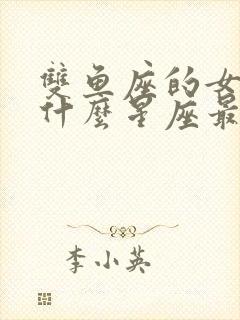 雙魚座的女
什麼星座最
李小英